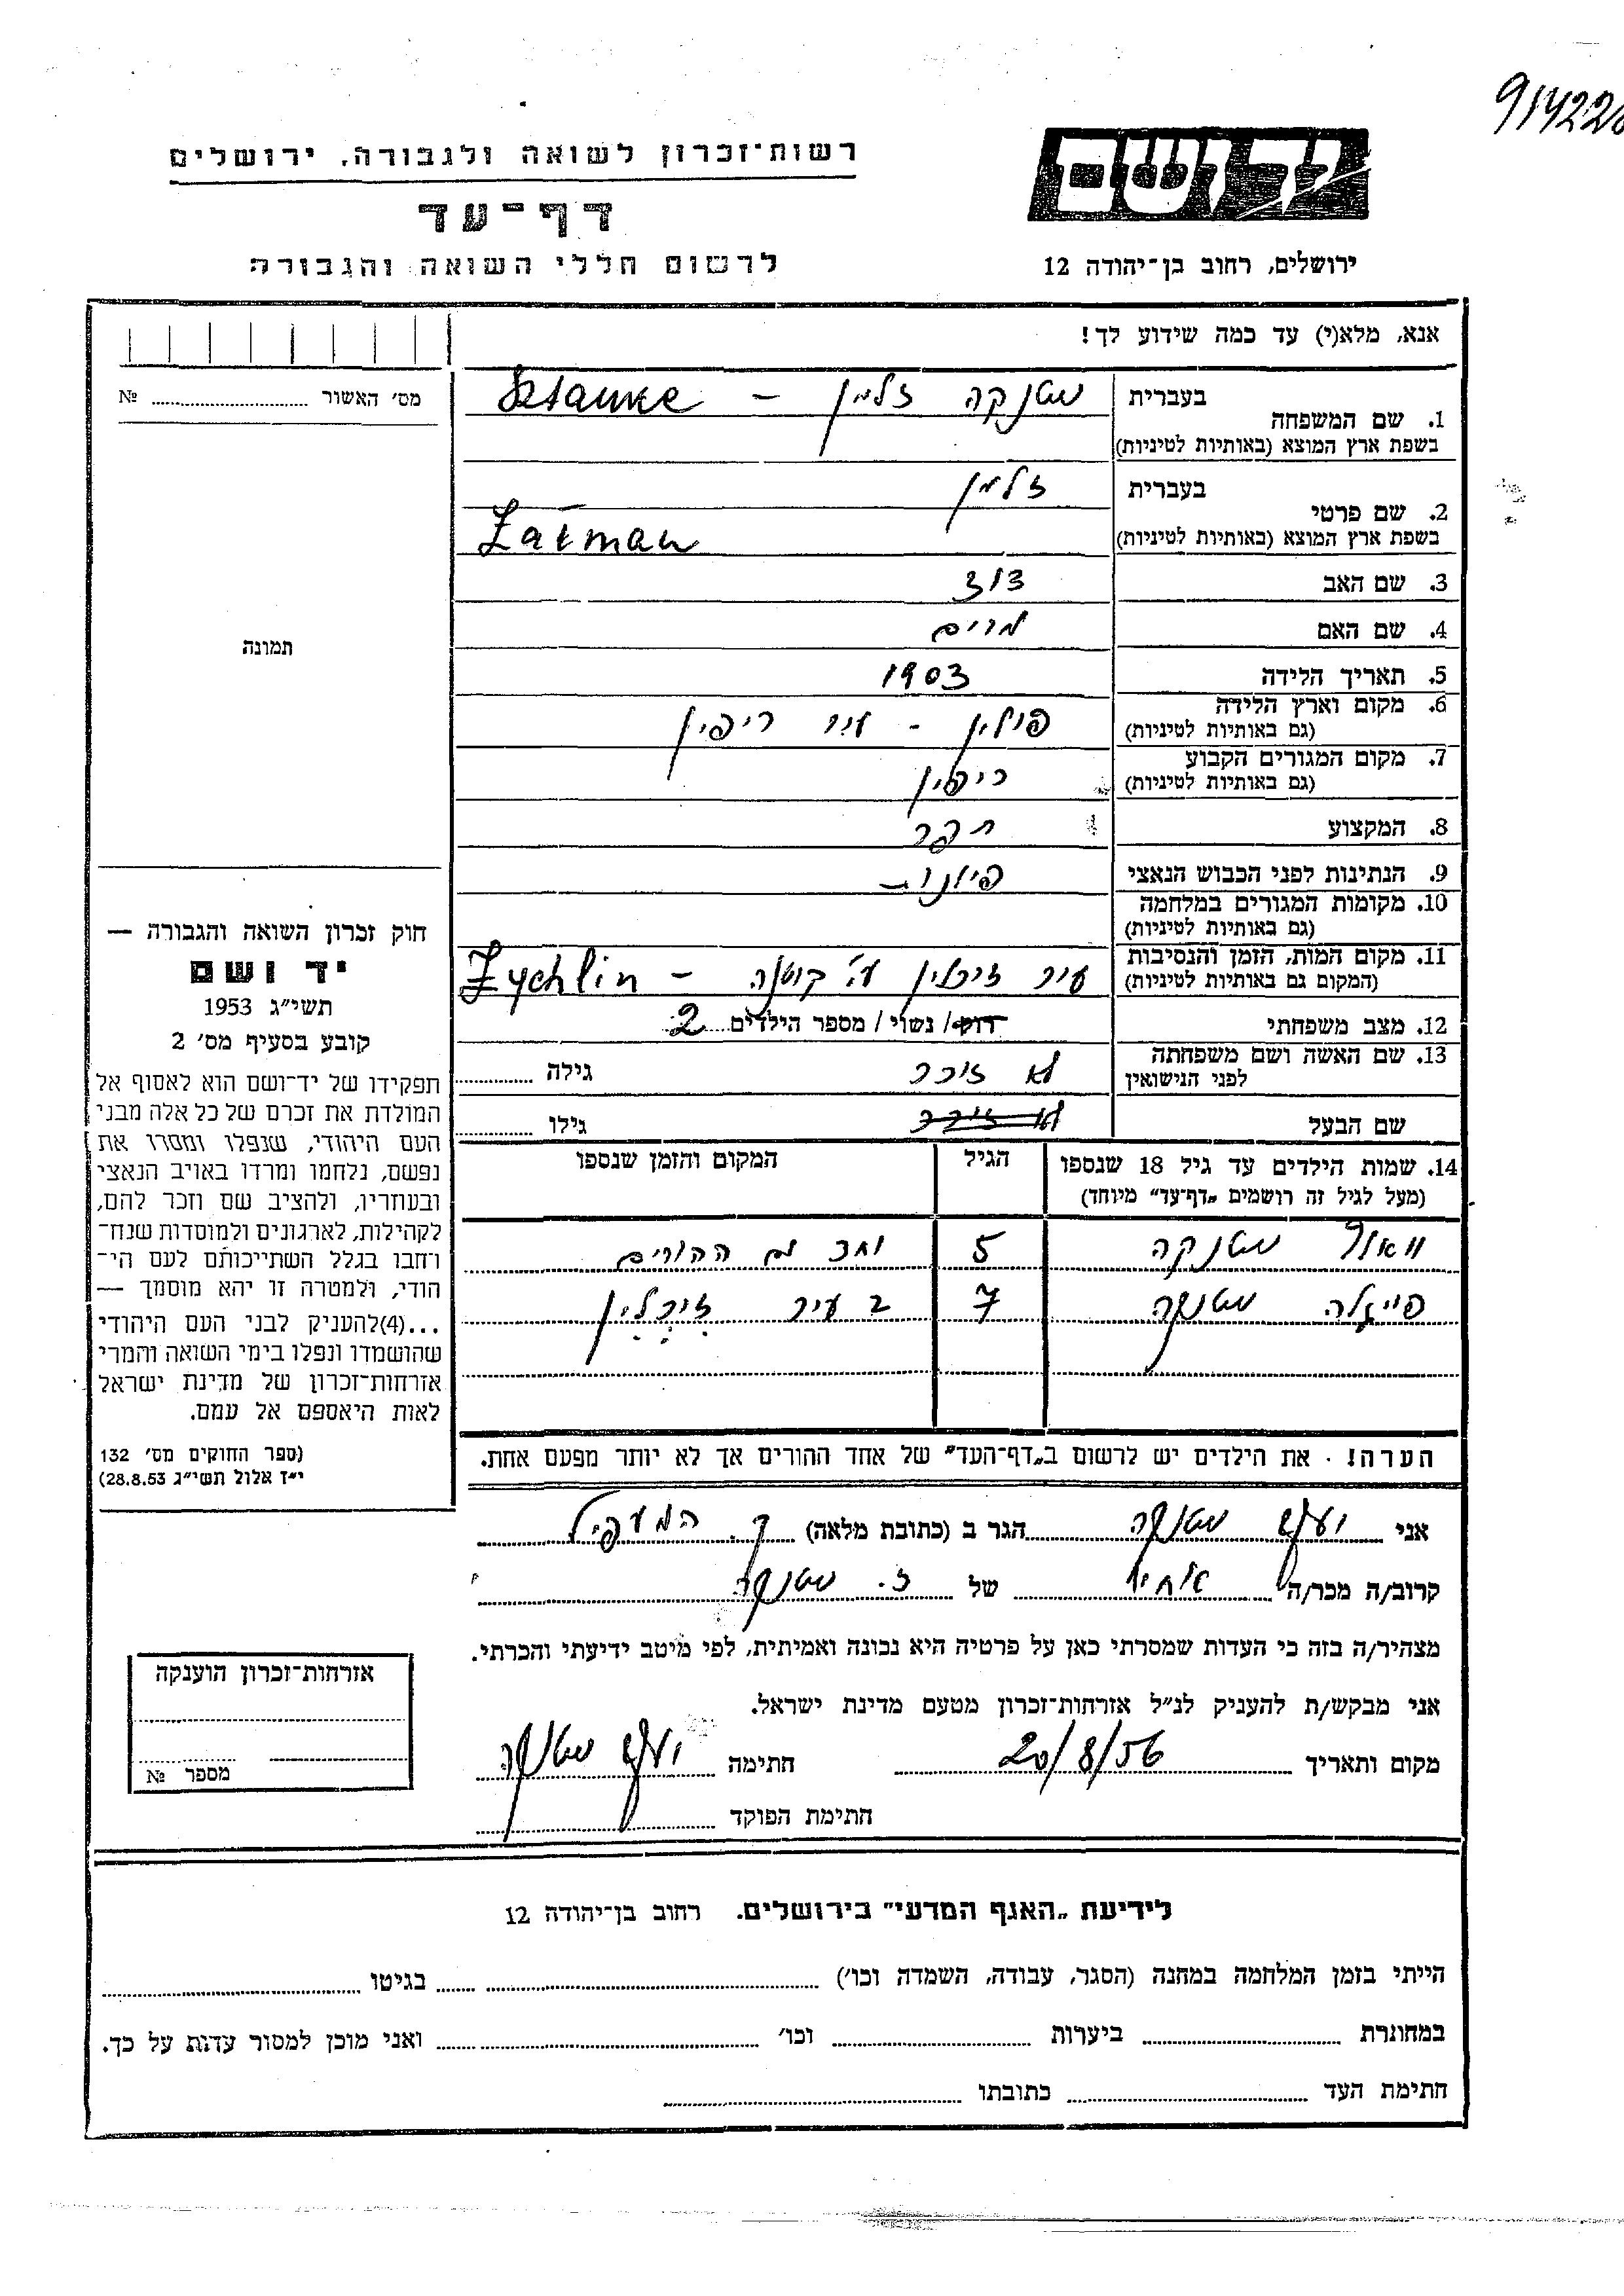 914228
רשות־זכרון לשואה ולגבורה, ירושלים
דף־עד
לרשום חללי השואה והגבורה
יד ושם
ירושלים, רחוב בן־יהודה 12
אנא, מלא(י) עד כמה שידוע לך!
מס׳ האשור № 
תמונה
1. שם המשפחה
בעברית שטנקה זלמן - Sztanke
בשפת ארץ המוצא (באותיות לטיניות)
2. שם פרטי
בעברית זלמן
בשפת ארץ המוצא (באותיות לטיניות) Załman
3. שם האב
4. שם האם מרים
5. תאריך הלידה 1903
6. מקום וארץ הלידה (גם באותיות לטיניות) פולין - עיר ריפין
7. מקום המגורים הקבוע (גם באותיות לטיניות) ריפין
8. המקצוע תפר
9. הנתינות לפני הכבוש הנאצי
10. מקומות המגורים במלחמה (גם באותיות לטיניות)
11. מקום המות, הזמן והנסיבות (המקום גם באותיות לטיניות) עיר זיכלין ע״י קוטנה - Zychlin
12. מצב משפחתי רוק/ נשוי / מספר הילדים 2
13. שם האשה ושם משפחתה לפני הנישואין לא זוכר גילה
שם הבעל לא זוכר גילו
14. שמות הילדים עד גיל 18 שנספו הגיל המקום והזמן שנספו
(מעל לגיל זה רושמים „דף־עד״ מיוחד)
שטנקה 5 יחד עם ההורים
פייגלה שטנקה 7 בעיר זיכלין
הערה! את הילדים יש לרשום ב„דף־העד״ של אחד ההורים אך לא יותר מפעם אחת.
חוק זכרון השואה והגבורה —
יד ושם
תשי״ג 1953
קובע בסעיף מס׳ 2
תפקידו של יד־ושם הוא לאסוף אל
המולדת את זכרם של כל אלה מבני
העם היהודי, שנפלו ומסרו את
נפשם, נלחמו ומרדו באויב הנאצי
ובעוזריו, ולהציב שם וזכר להם,
לקהילות, לארגונים ולמוסדות שנח־
רחבו בגלל השתייכותם לעם הי־
הודי, ולמטרה זו יהא מוסמך —
...(4)להעניק לבני העם היהודי
שהושמדו ונפלו בימי השואה והמרי
אזרחות־זכרון של מדינת ישראל
לאות היאספם אל עמם.
(ספר החוקים מס׳ 132
י״ז אלול תשי״ג 28.8.53)
אני שטנקה הגר ב (כתובת מלאה) ק. המעפיל
קרוב/ה מכר/ה אחיו של ז. שטנקה
מצהיר/ה בזה כי העדות שמסרתי כאן על פרטיה היא נכונה ואמיתית, לפי מיטב ידיעתי והכרתי.
אני מבקש/ת להעניק לנ״ל אזרחות־זכרון מטעם מדינת ישראל.
מקום ותאריך 20/8/56 חתימה שטנקה
חתימת הפוקד
אזרחות־זכרון הוענקה
מספר №
לידיעת „האגף המדעי״ בירושלים. רחוב בן־יהודה 12
הייתי בזמן המלחמה במחנה (הסגר, עבודה, השמדה וכו׳) בגיטו
במחתרת ביערות וכו׳ ואני מוכן למסור עדות על כך.
חתימת העד כתובתו